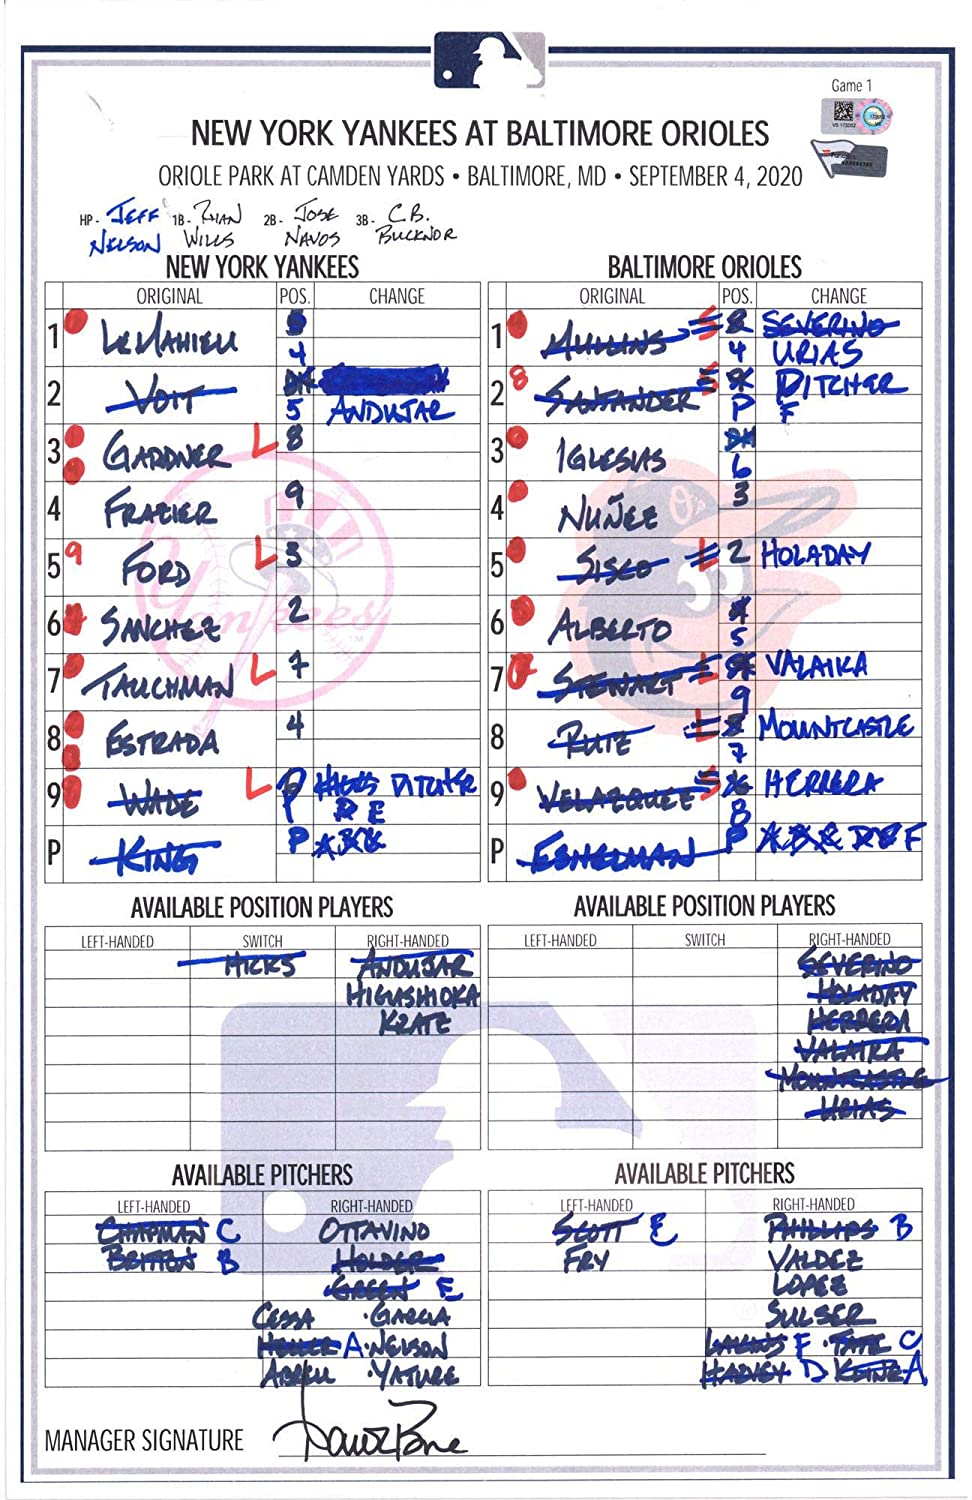 Game 1
NEW YORK YANKEES AT BALTIMORE ORIOLES
ORIOLE PARK AT CAMDEN YARDS • BALTIMORE, MD • SEPTEMBER 4, 2020
HP - JEFF NELSON 1B - RYAN WILLS 2B - JOSE NAVOS 3B - C.B. BUCKNOR
NEW YORK YANKEES
ORIGINAL POS. CHANGE
1 LEMAHIEU 4
2 VOIT DH
5 ANDUJAR
3 GARDNER L 8
4 FRAZIER 9
5 FORD L 3
6 SANCHEZ 2
7 TAUCHMAN L 7
8 ESTRADA 4
9 WADE L HICKS PITCHER
P D E
P KING P A B C
BALTIMORE ORIOLES
ORIGINAL POS. CHANGE
1 MULLINS S 8 SEVERINO
4 URIAS
2 SANTANDER S PITCHER
P F
3 IGLESIAS DH
6
4 NUÑEZ 3
5 SISCO L 2 HOLADAY
6 ALBERTO 4
5
7 STEWART L VALAIKA
9
8 RUIZ L MOUNTCASTLE
7
9 VELAZQUEZ S HERRERA
8
P ESHELMAN P A B C D E F
AVAILABLE POSITION PLAYERS
LEFT-HANDED SWITCH RIGHT-HANDED
HICKS ANDUJAR
HIGASHIOKA
KRATZ
AVAILABLE POSITION PLAYERS
LEFT-HANDED SWITCH RIGHT-HANDED
SEVERINO
HOLADAY
HERRERA
VALAIKA
MOUNTCASTLE
URIAS
AVAILABLE PITCHERS
LEFT-HANDED RIGHT-HANDED
CHAPMAN C OTTAVINO
BRITTON B HOLDER
GREEN E
CESSA · GARCIA
HELLER A · NELSON
ABREU · YAJURE
AVAILABLE PITCHERS
LEFT-HANDED RIGHT-HANDED
SCOTT E PHILLIPS B
FRY VALDEZ
LOPEZ
SULSER
LAKINS F · TATE C
HARVEY D KLINE A
MANAGER SIGNATURE